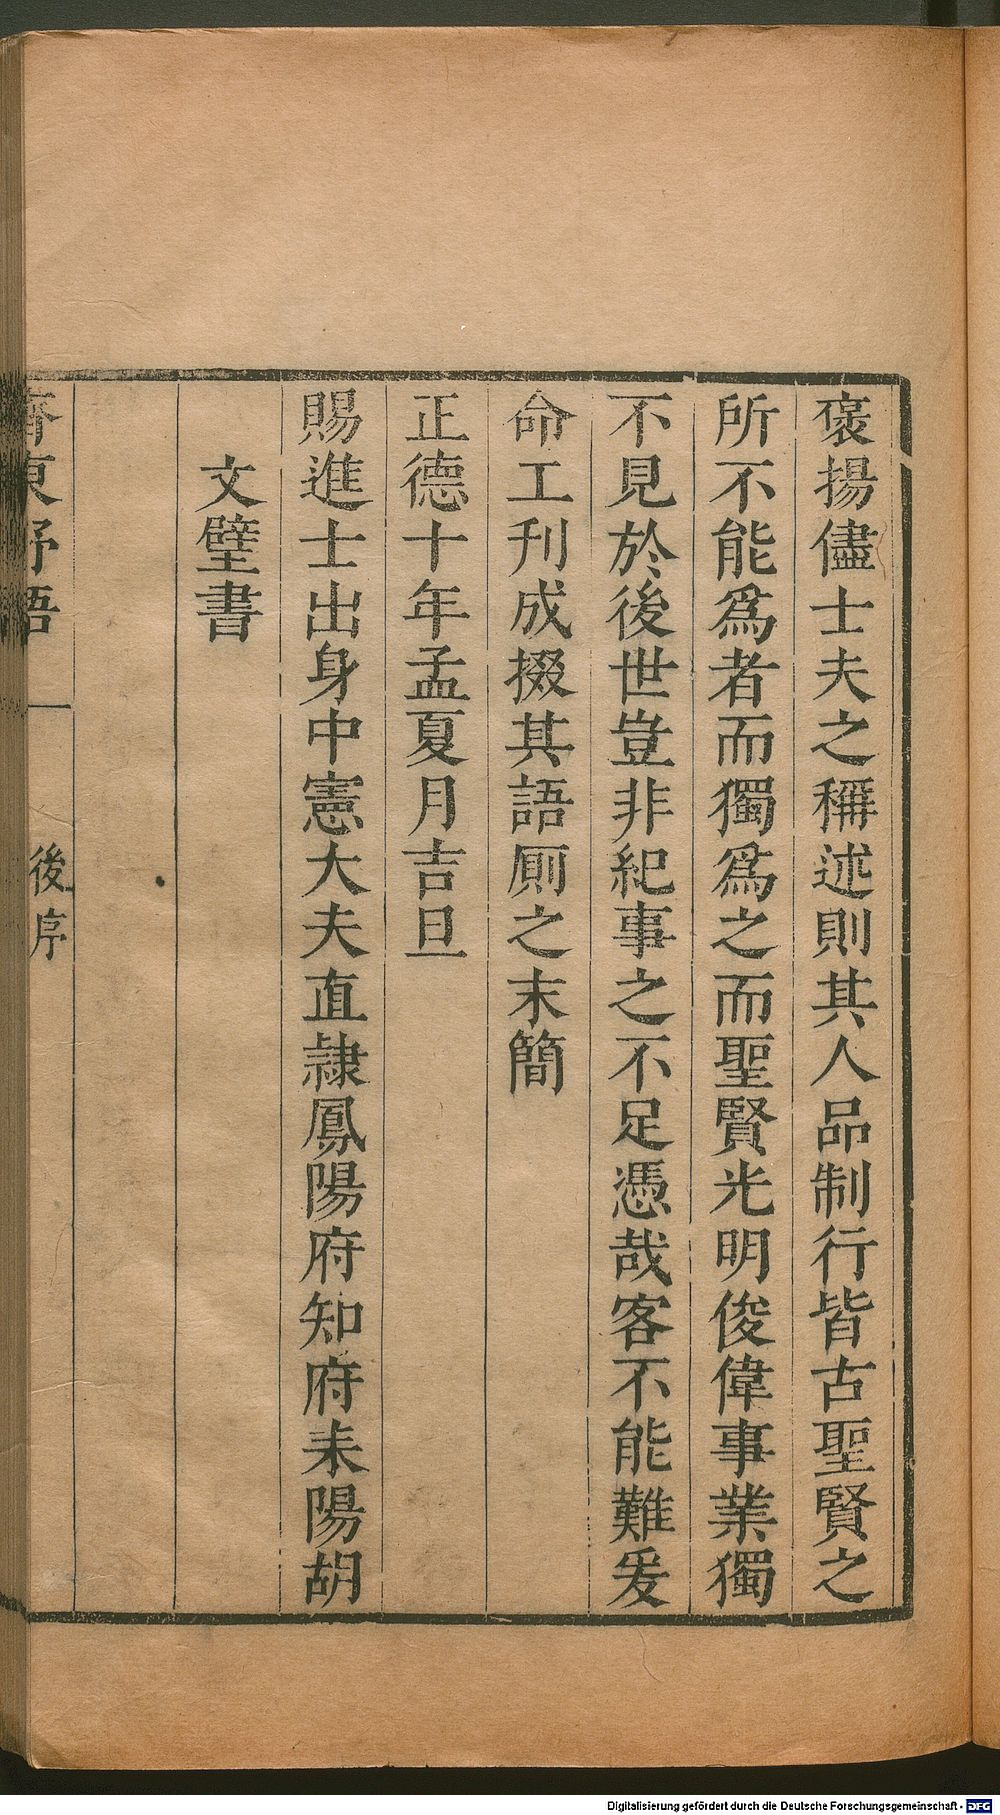 褒揚儘士夫之稱述則其人品制行皆古聖賢之
所不能爲者而獨爲之而聖賢光明俊偉事業獨
不見於後世豈非紀事之不足憑哉客不能難爰
命工刋成掇其語厠之末簡
正德十年孟夏月吉旦
賜進士出身中憲大夫直隷鳳陽府知府耒陽胡
文璧書
齊東野語 一 後序
Digitalisierung gefördert durch die Deutsche Forschungsgemeinschaft - DFG